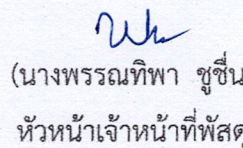 (นางพรรณทิพา ชูชื่น
หัวหน้าเจ้าหน้าที่พัสดุ